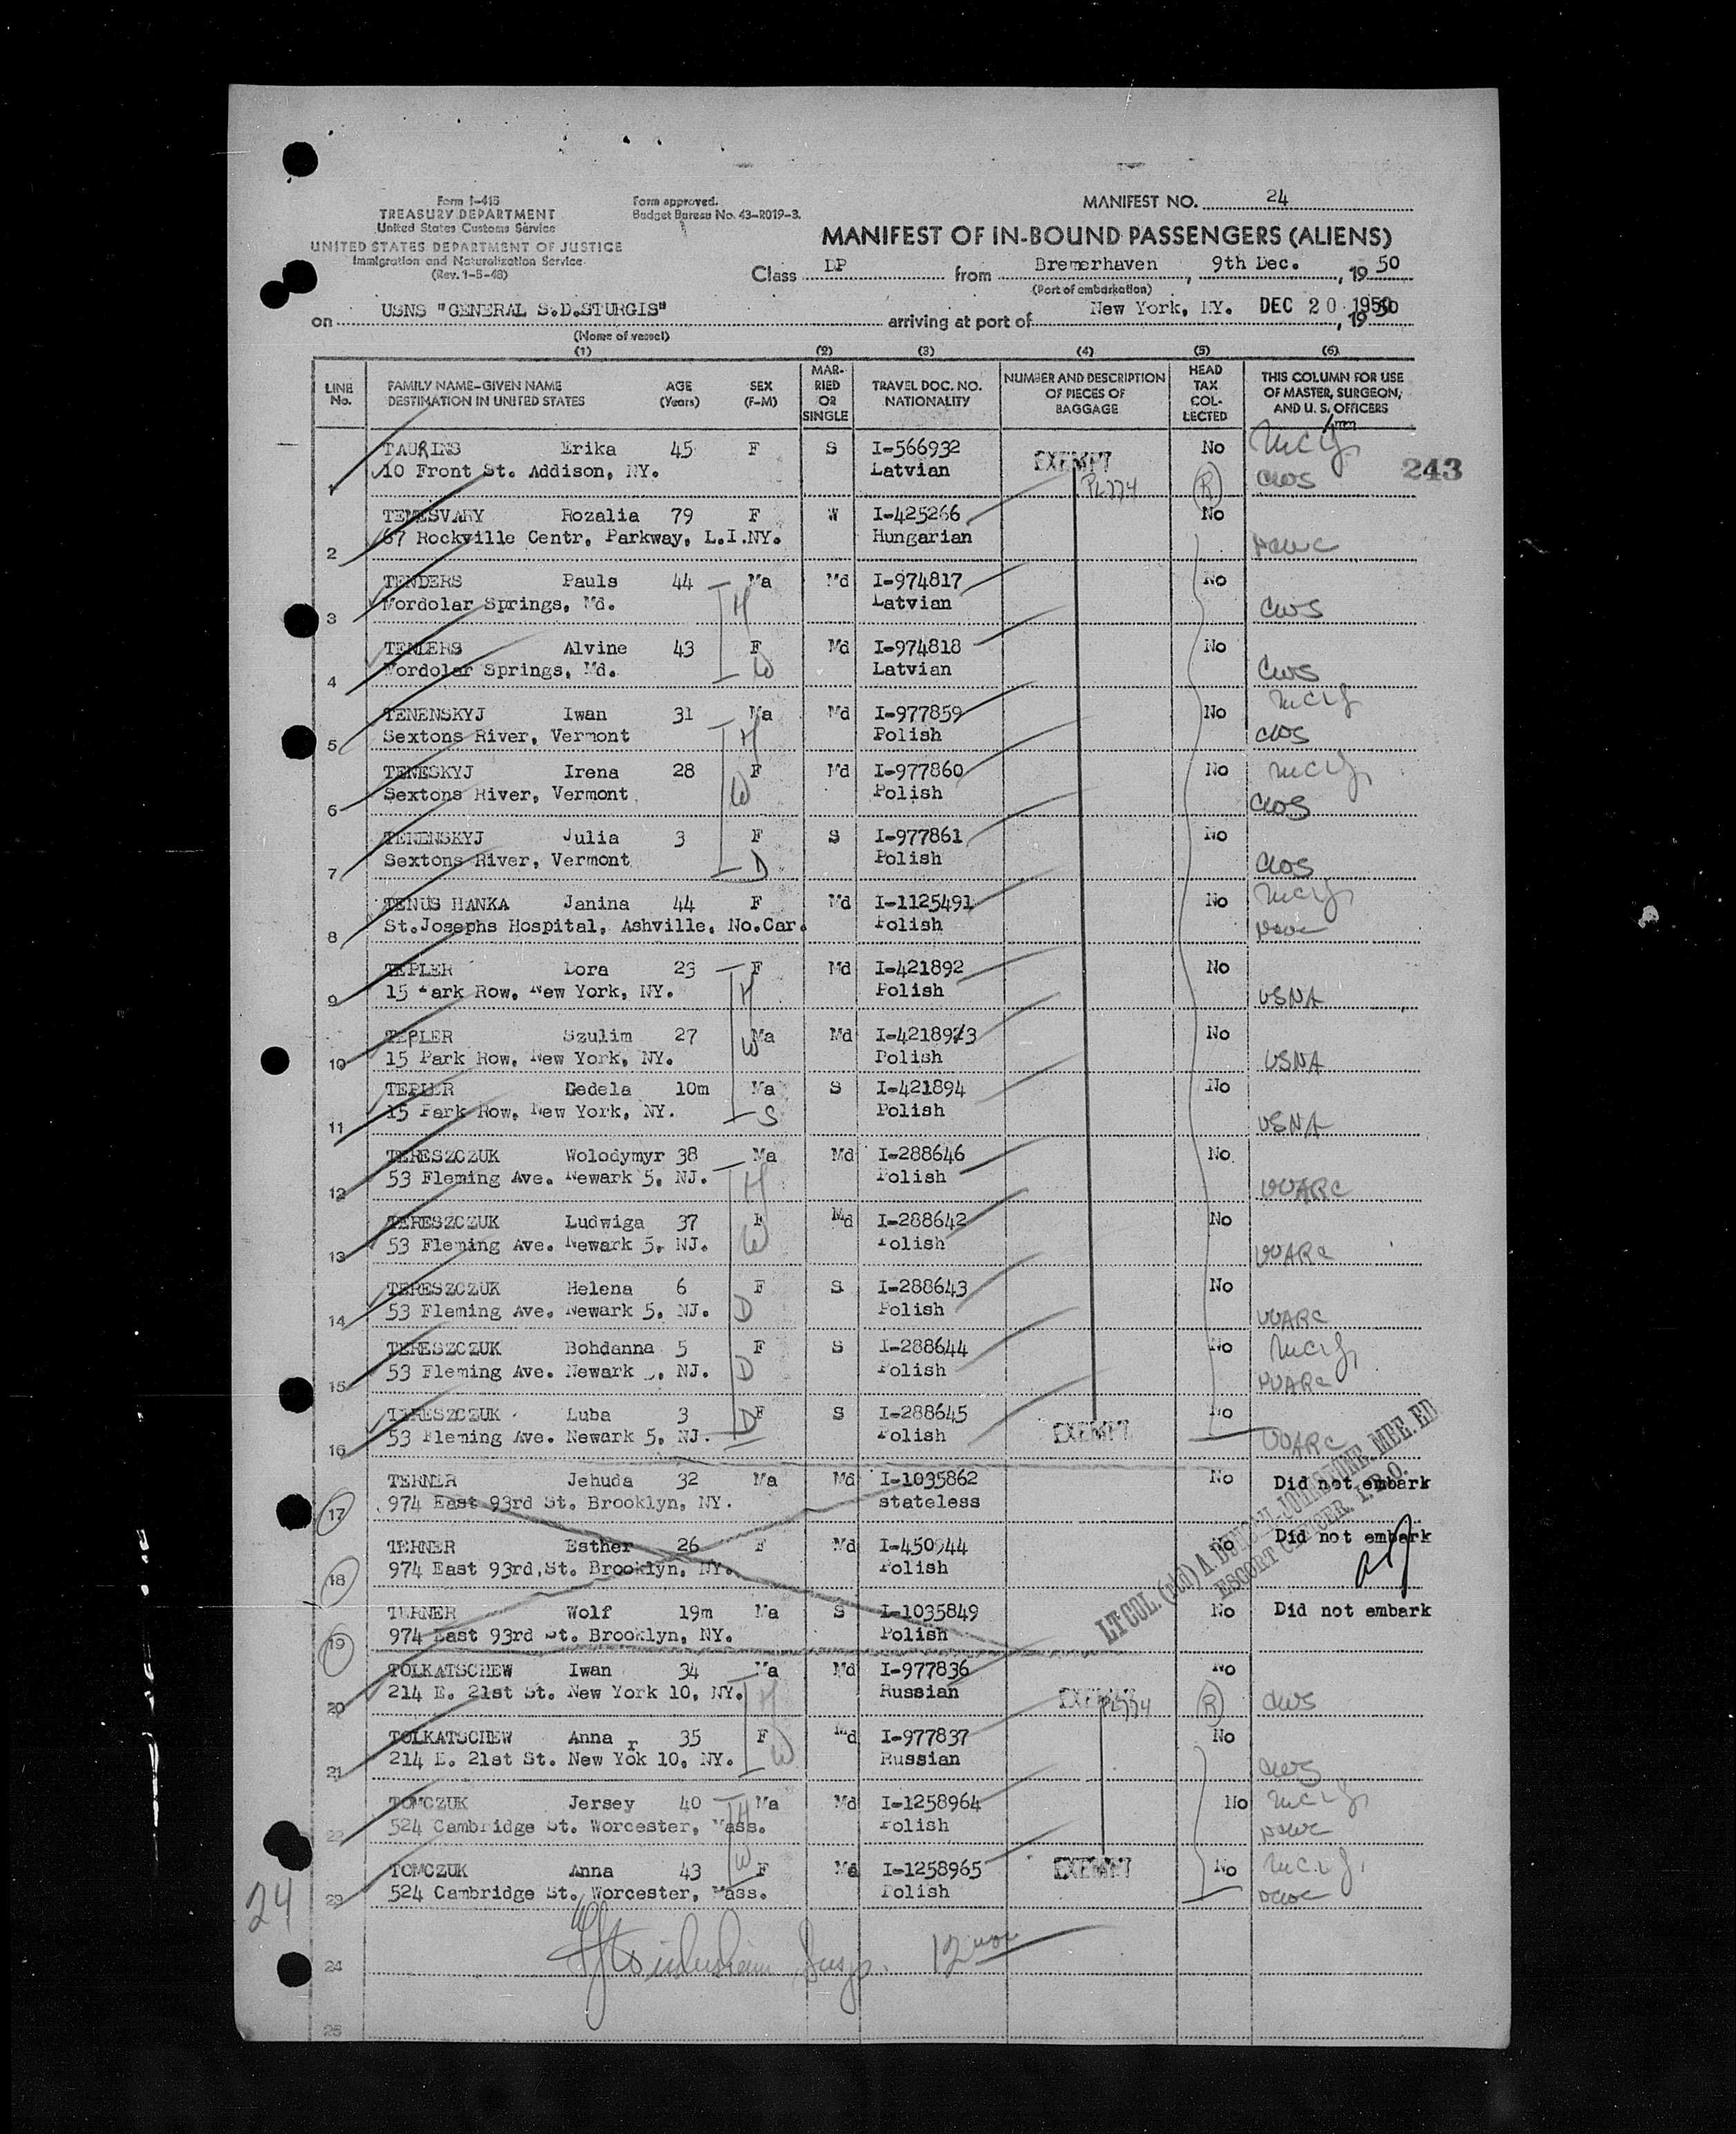 Form I-415
TREASURY DEPARTMENT
United States Customs Service
UNITED STATES DEPARTMENT OF JUSTICE
Immigration and Naturalization Service
(Rev. 1-5-48)
Form approved.
Budget Bureau No. 43-R019-3.
MANIFEST NO. 24
MANIFEST OF IN-BOUND PASSENGERS (ALIENS)
Class DP from Bremerhaven, 9th Dec., 19 50
(Port of embarkation)
on USNS "GENERAL S.D.STURGIS" arriving at port of New York, NY. DEC 20 1950, 19 50
(Name of vessel)
(1) (2) (3) (4) (5) (6)
LINE No. FAMILY NAME-GIVEN NAME DESTINATION IN UNITED STATES AGE (Years) SEX (F-M) MARRIED OR SINGLE TRAVEL DOC. NO. NATIONALITY NUMBER AND DESCRIPTION OF PIECES OF BAGGAGE HEAD TAX COLLECTED THIS COLUMN FOR USE OF MASTER, SURGEON, AND U. S. OFFICERS
243
1 TAURINS Erika 45 F S I-566932 EXEMPT No
10 Front St. Addison, NY. Latvian PL774 (R) CWS
2 TEMESVARY Rozalia 79 F W I-425266 No
67 Rockville Centr, Parkway, L.I.NY. Hungarian
3 TENDERS Pauls 44 Ma Md I-974817 No
Wordolar Springs, Md. H Latvian CWS
4 TENDERS Alvine 43 F Md I-974818 No
Wordolar Springs, Md. W Latvian CWS
5 TENENSKYJ Iwan 31 Ma Md I-977859 No
Sextons River, Vermont H Polish CWS
6 TENESKYJ Irena 28 F Md I-977860 No
Sextons River, Vermont W Polish CWS
7 TENENSKYJ Julia 3 F S I-977861 No
Sextons River, Vermont D Polish CWS
8 TENUS HANKA Janina 44 F Md I-1125491 No
St.Josephs Hospital, Ashville, No.Car. Polish
9 TEPLER Dora 23 F Md I-421892 No
15 Park Row, New York, NY. H Polish USNA
10 TEPLER Szulim 27 Ma Md I-421893 No
15 Park Row, New York, NY. W Polish USNA
11 TEPLER Gedela 10m Ma S I-421894 No
15 Park Row, New York, NY. S Polish USNA
12 TERESZCZUK Wolodymyr 38 Ma Md I-288646 No
53 Fleming Ave. Newark 5, NJ. H Polish UUARC
13 TERESZCZUK Ludwiga 37 F Md I-288642 No
53 Fleming Ave. Newark 5, NJ. W Polish UUARC
14 TERESZCZUK Helena 6 F S I-288643 No
53 Fleming Ave. Newark 5, NJ. D Polish UUARC
15 TERESZCZUK Bohdanna 5 F S I-288644 No
53 Fleming Ave. Newark 5, NJ. D Polish UUARC
16 TERESZCZUK Luba 3 F S I-288645 EXEMPT No
53 Fleming Ave. Newark 5, NJ. D Polish UUARC
17 TERNER Jehuda 32 Ma Md I-1035862 No Did not embark
974 East 93rd St. Brooklyn, NY. stateless
18 TERNER Esther 26 F Md I-450944 No Did not embark
974 East 93rd.St. Brooklyn, NY. Polish
19 TERNER Wolf 19m Ma S I-1035849 No Did not embark
974 East 93rd St. Brooklyn, NY. Polish
ESCORT OFFICER. I.R.O.
20 TOLKATSCHEW Iwan 34 Ma Md I-977836 No
214 E. 21st St. New York 10, NY. H Russian EXEMPT PL774 (R) CWS
21 TOLKATSCHEW Anna 35 F Md I-977837 No
214 E. 21st St. New Yo r k 10, NY. W Russian CWS
22 TOMCZUK Jersey 40 Ma Md I-1258964 No
524 Cambridge St. Worcester, Mass. H Polish
23 TOMCZUK Anna 43 F Md I-1258965 EXEMPT No
524 Cambridge St. Worcester, Mass. W Polish
24
24
25